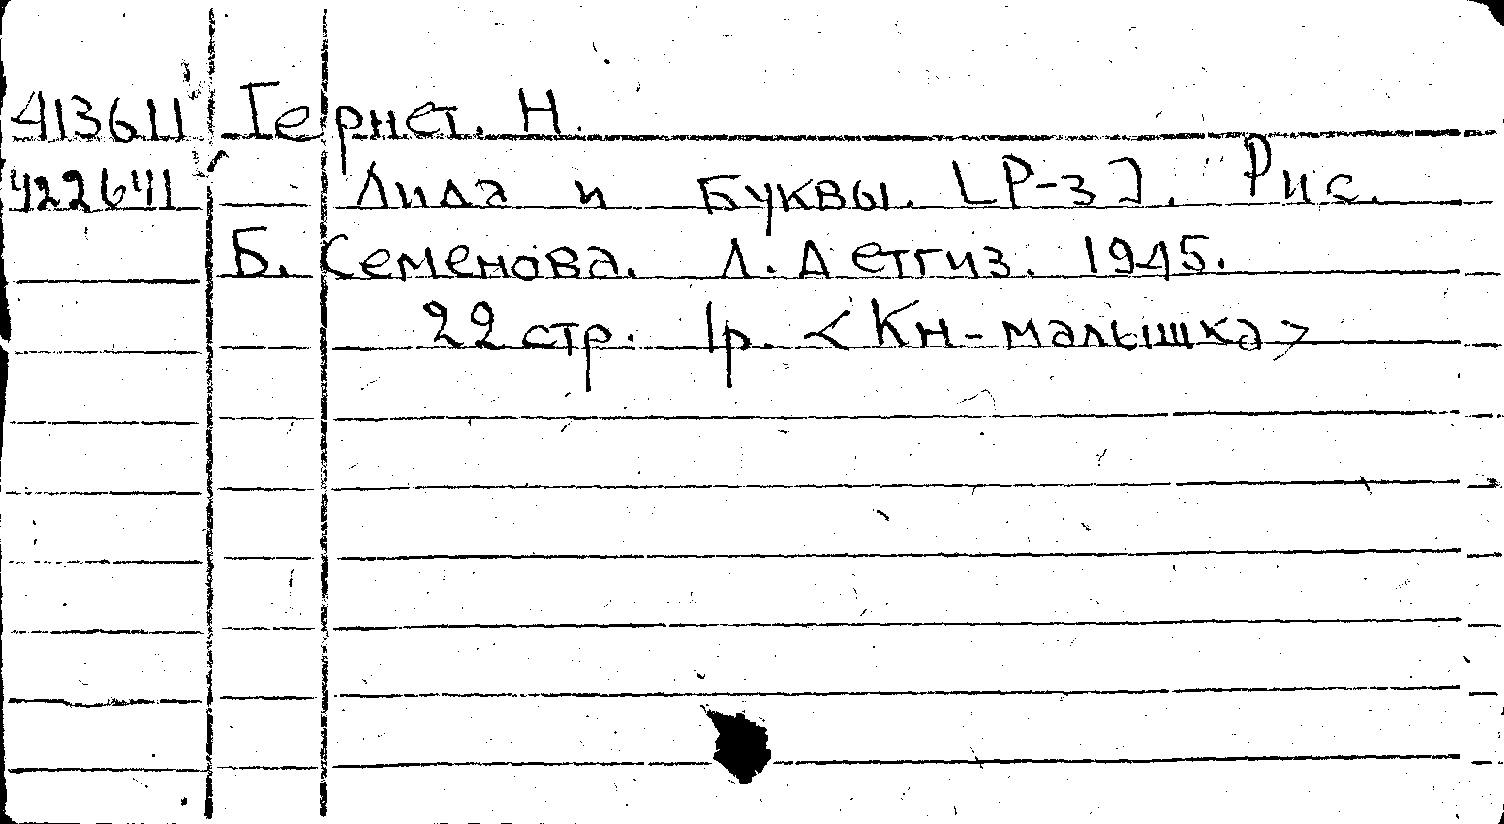 413611 Гернет. Н.
422641 Лида и буквы. [Р-з]. Рис.
Б. Семенова. Л. Детгиз. 1945.
22 стр. 1р. <Кн-малышка>